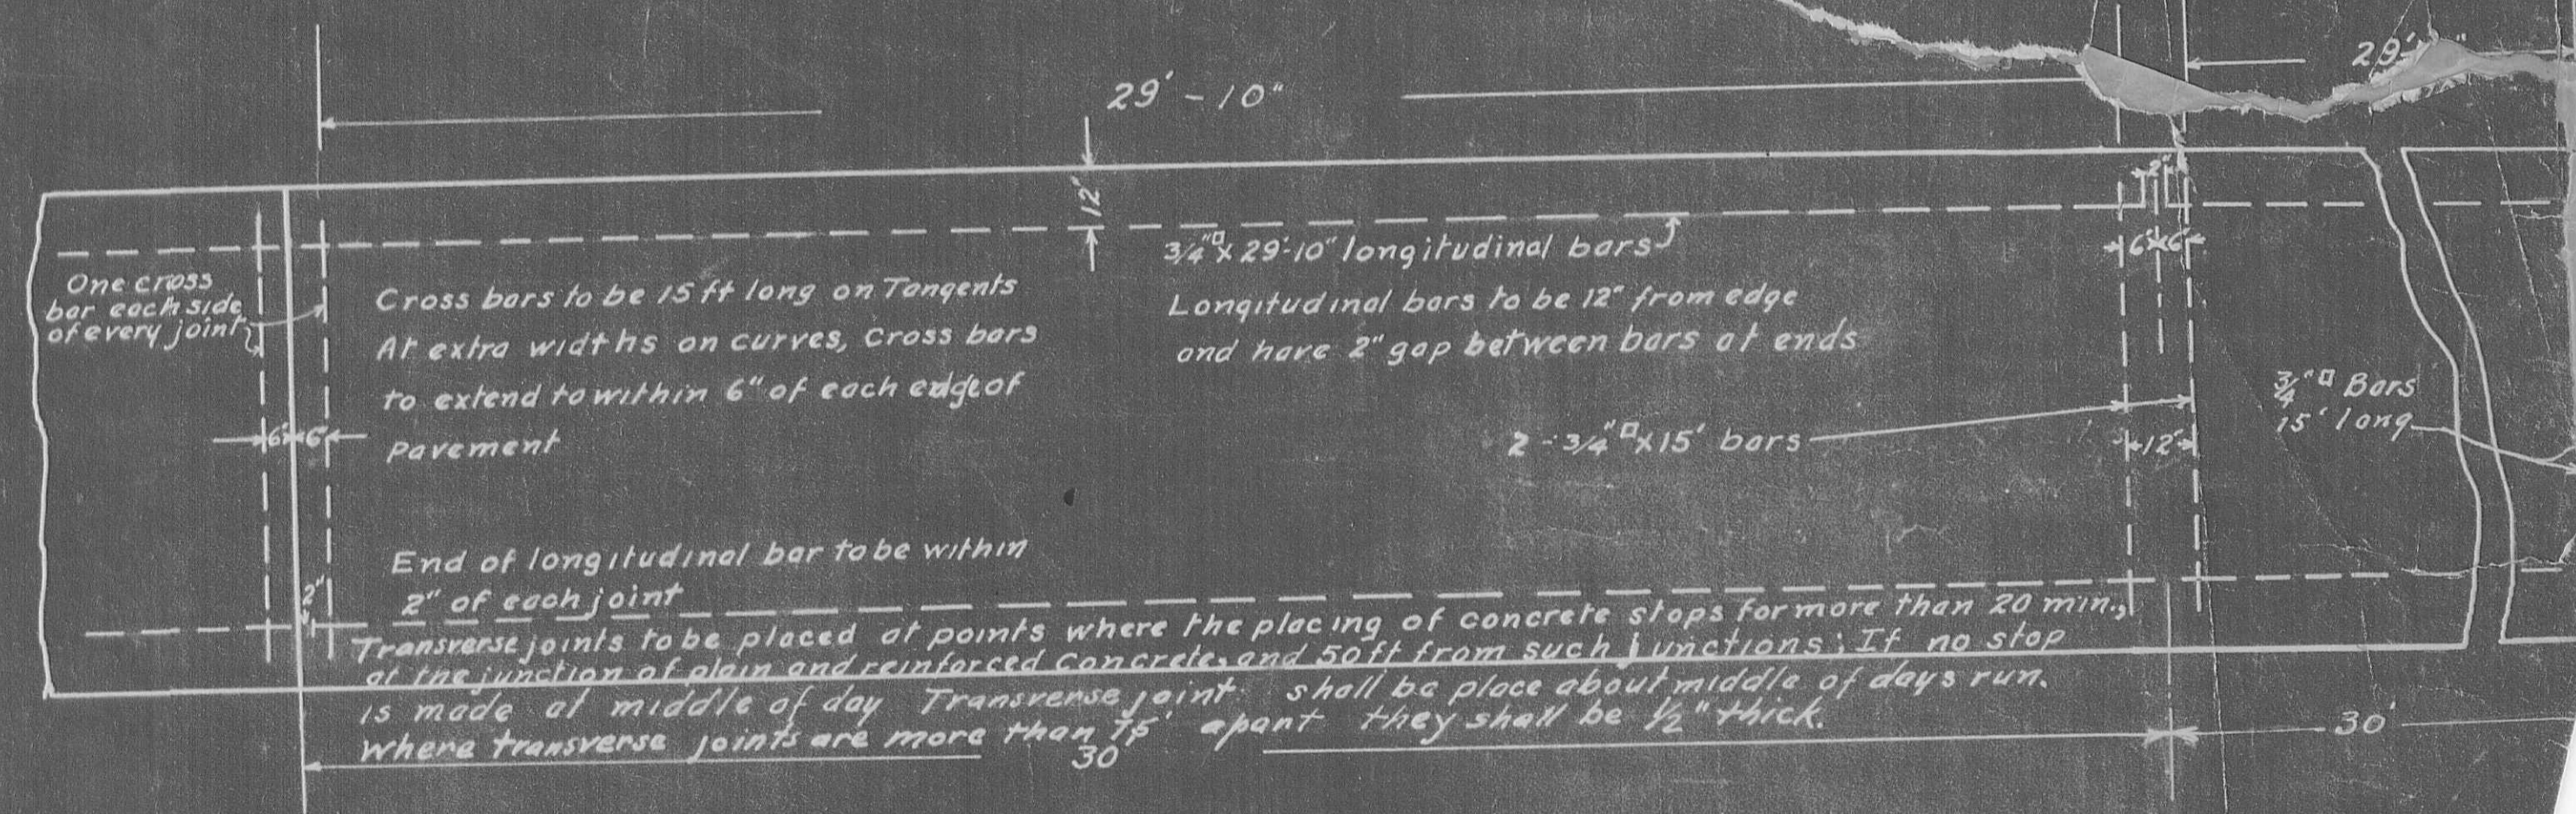 29'-10"
29'-
12"
2"
3/4"□ x 29'-10" longitudinal bars
6" 6"
One cross
bar each side
of every joint
Cross bars to be 15 ft long on Tangents
At extra widths on curves, Cross bars
to extend to within 6" of each edge of
pavement
Longitudinal bars to be 12" from edge
and have 2" gap between bars at ends
3/4"□ Bars
15' long
6" 6"
2 - 3/4"□ x 15' bars
12"
End of longitudinal bar to be within
2" of each joint
2"
Transverse joints to be placed at points where the placing of concrete stops for more than 20 min.,
at the junction of plain and reinforced concrete, and 50 ft from such junctions; If no stop
is made at middle of day Transverse joint shall be place about middle of days run.
Where transverse joints are more than 75' apart they shall be 1/2" thick.
30
30'